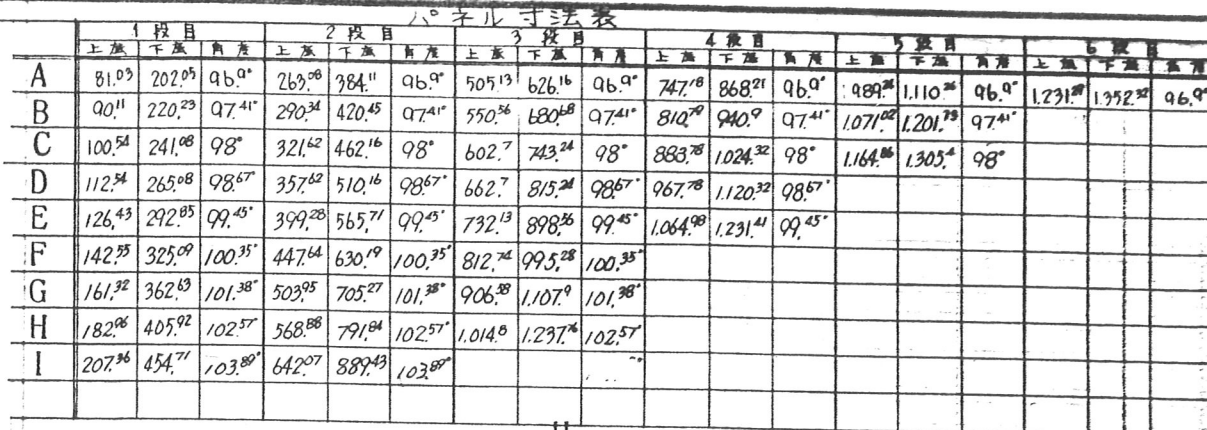 パネル寸法表
1段目 2段目 3段目 4段目 5段目 6段目
上底 下底 角度 上底 下底 角度 上底 下底 角度 上底 下底 角度 上底 下底 角度 上底 下底 角度
A 81.03 202.05 96.9° 263.08 384.11 96.9° 505.13 626.16 96.9° 747.18 868.21 96.9° 989.26 1.110.26 96.9° 1.231.29 1.352.32 96.9°
B 90.11 220.23 97.41° 290.34 420.45 97.41° 550.56 680.68 97.41° 810.79 940.9 97.41° 1.071.02 1.201.13 97.41°
C 100.54 241.08 98° 321.62 462.16 98° 602.7 743.24 98° 883.78 1.024.32 98° 1.164.86 1.305.4 98°
D 112.54 265.08 98.67° 357.62 510.16 98.67° 662.7 815.24 98.67° 967.78 1.120.32 98.67°
E 126.43 292.85 99.45° 399.28 565.71 99.45° 732.13 898.56 99.45° 1.064.98 1.231.41 99.45°
F 142.55 325.09 100.35° 447.64 630.19 100.35° 812.74 995.28 100.35°
G 161.32 362.63 101.38° 503.95 705.27 101.38° 906.58 1.107.9 101.38°
H 182.96 405.92 102.57° 568.88 791.84 102.57° 1.014.8 1.237.76 102.57°
I 207.36 454.71 103.89° 642.07 889.43 103.89°